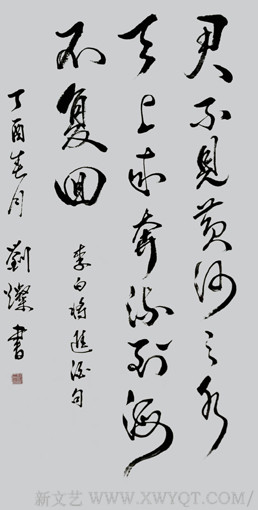 君不見黄河之水
天上来奔流到海
不复回
李白將進酒句
丁酉春月 劉燦書
新文艺 WWW.XWYQT.COM/